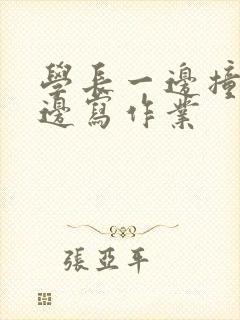 學長一邊撞
邊寫作業
張亞平